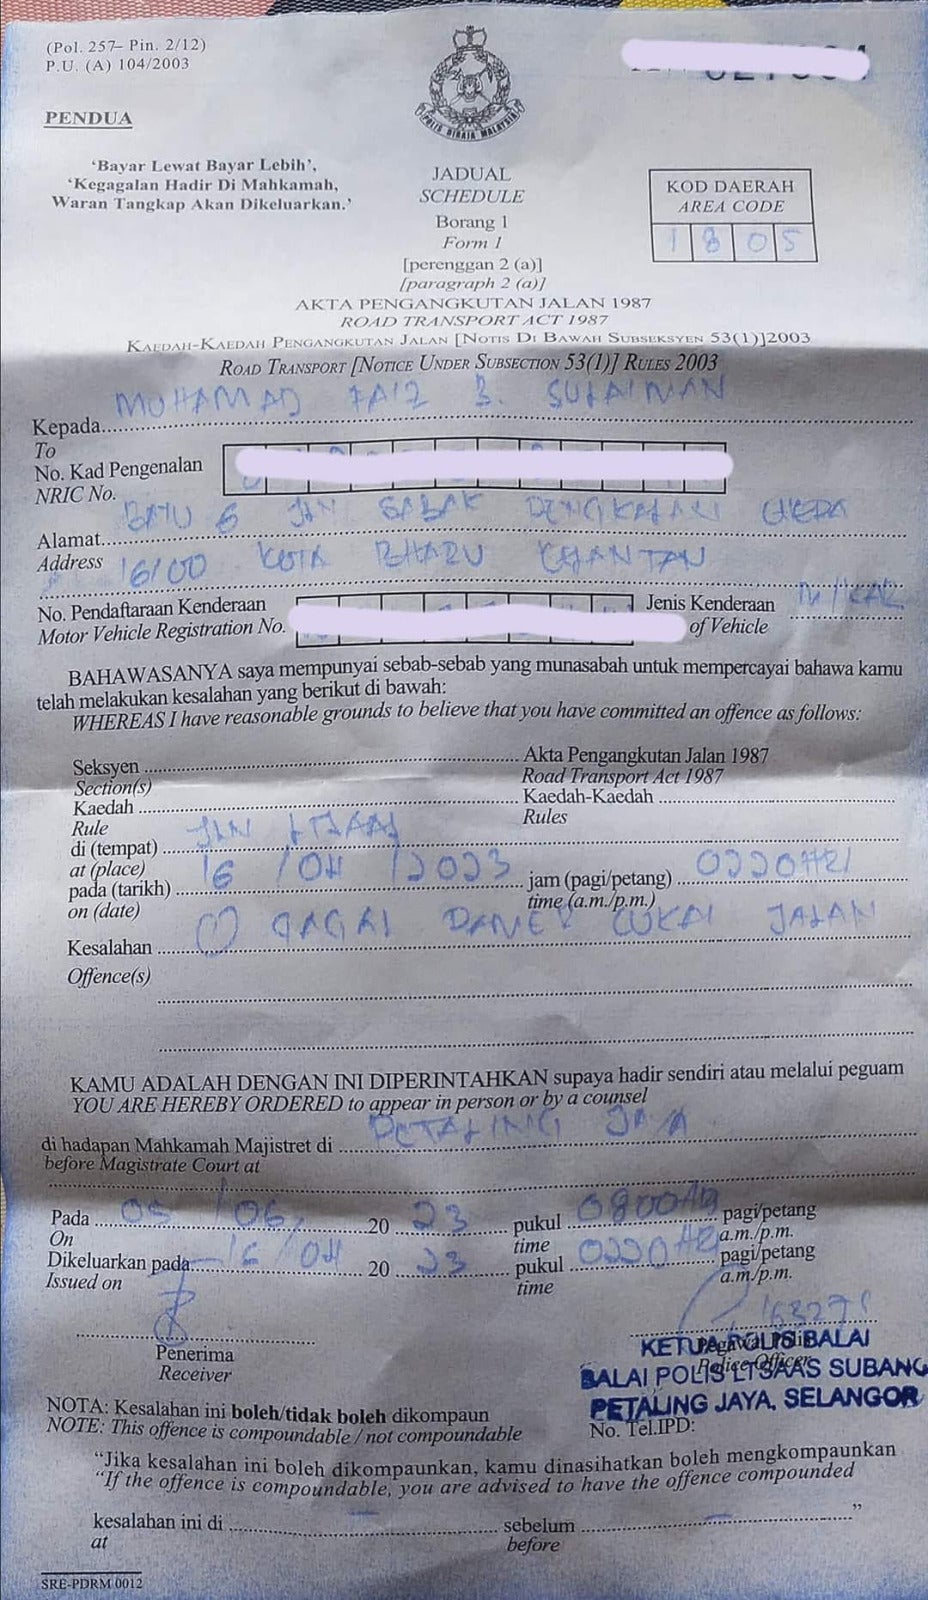 (Pol. 257– Pin. 2/12)
P.U. (A) 104/2003
PENDUA
POLIS DIRAJA MALAYSIA
'Bayar Lewat Bayar Lebih',
'Kegagalan Hadir Di Mahkamah,
Waran Tangkap Akan Dikeluarkan.'
JADUAL
SCHEDULE
Borang 1
Form 1
[perenggan 2 (a)]
[paragraph 2 (a)]
KOD DAERAH
AREA CODE
1 8 0 5
AKTA PENGANGKUTAN JALAN 1987
ROAD TRANSPORT ACT 1987
KAEDAH-KAEDAH PENGANGKUTAN JALAN [NOTIS DI BAWAH SUBSEKSYEN 53(1)]2003
ROAD TRANSPORT [NOTICE UNDER SUBSECTION 53(1)] RULES 2003
Kepada MUHAMAD FAIZ B. SULAIMAN
To
No. Kad Pengenalan
NRIC No.
Alamat BATU 6 JLN SABAK PENGKALAN CHEPA
Address 16100 KOTA BHARU KELANTAN
No. Pendaftaraan Kenderaan
Motor Vehicle Registration No.
Jenis Kenderaan M/KAR
of Vehicle
BAHAWASANYA saya mempunyai sebab-sebab yang munasabah untuk mempercayai bahawa kamu
telah melakukan kesalahan yang berikut di bawah:
WHEREAS I have reasonable grounds to believe that you have committed an offence as follows:
Seksyen Akta Pengangkutan Jalan 1987
Section(s) Road Transport Act 1987
Kaedah Kaedah-Kaedah
Rule Rules
di (tempat) JLN LTSAAS
at (place)
pada (tarikh) 16 / 04 / 2023 jam (pagi/petang) 0220HRS
on (date) time (a.m./p.m.)
Kesalahan (1) GAGAL PAMER CUKAI JALAN
Offence(s)
KAMU ADALAH DENGAN INI DIPERINTAHKAN supaya hadir sendiri atau melalui peguam
YOU ARE HEREBY ORDERED to appear in person or by a counsel
di hadapan Mahkamah Majistret di PETALING JAYA
before Magistrate Court at
Pada 05 / 06 20 23 pukul 0800HRS pagi/petang
On time a.m./p.m.
Dikeluarkan pada 16 04 20 23 pukul 0220HRS pagi/petang
Issued on time a.m./p.m.
Penerima
Receiver
Pegawai Polis
Police Officer
KETUA POLIS BALAI
BALAI POLIS LTSAAS SUBANG
PETALING JAYA, SELANGOR
NOTA: Kesalahan ini boleh/tidak boleh dikompaun
NOTE: This offence is compoundable / not compoundable
No. Tel.IPD:
"Jika kesalahan ini boleh dikompaunkan, kamu dinasihatkan boleh mengkompaunkan
"If the offence is compoundable, you are advised to have the offence compounded
kesalahan ini di – sebelum – "
at before
SRE-PDRM 0012